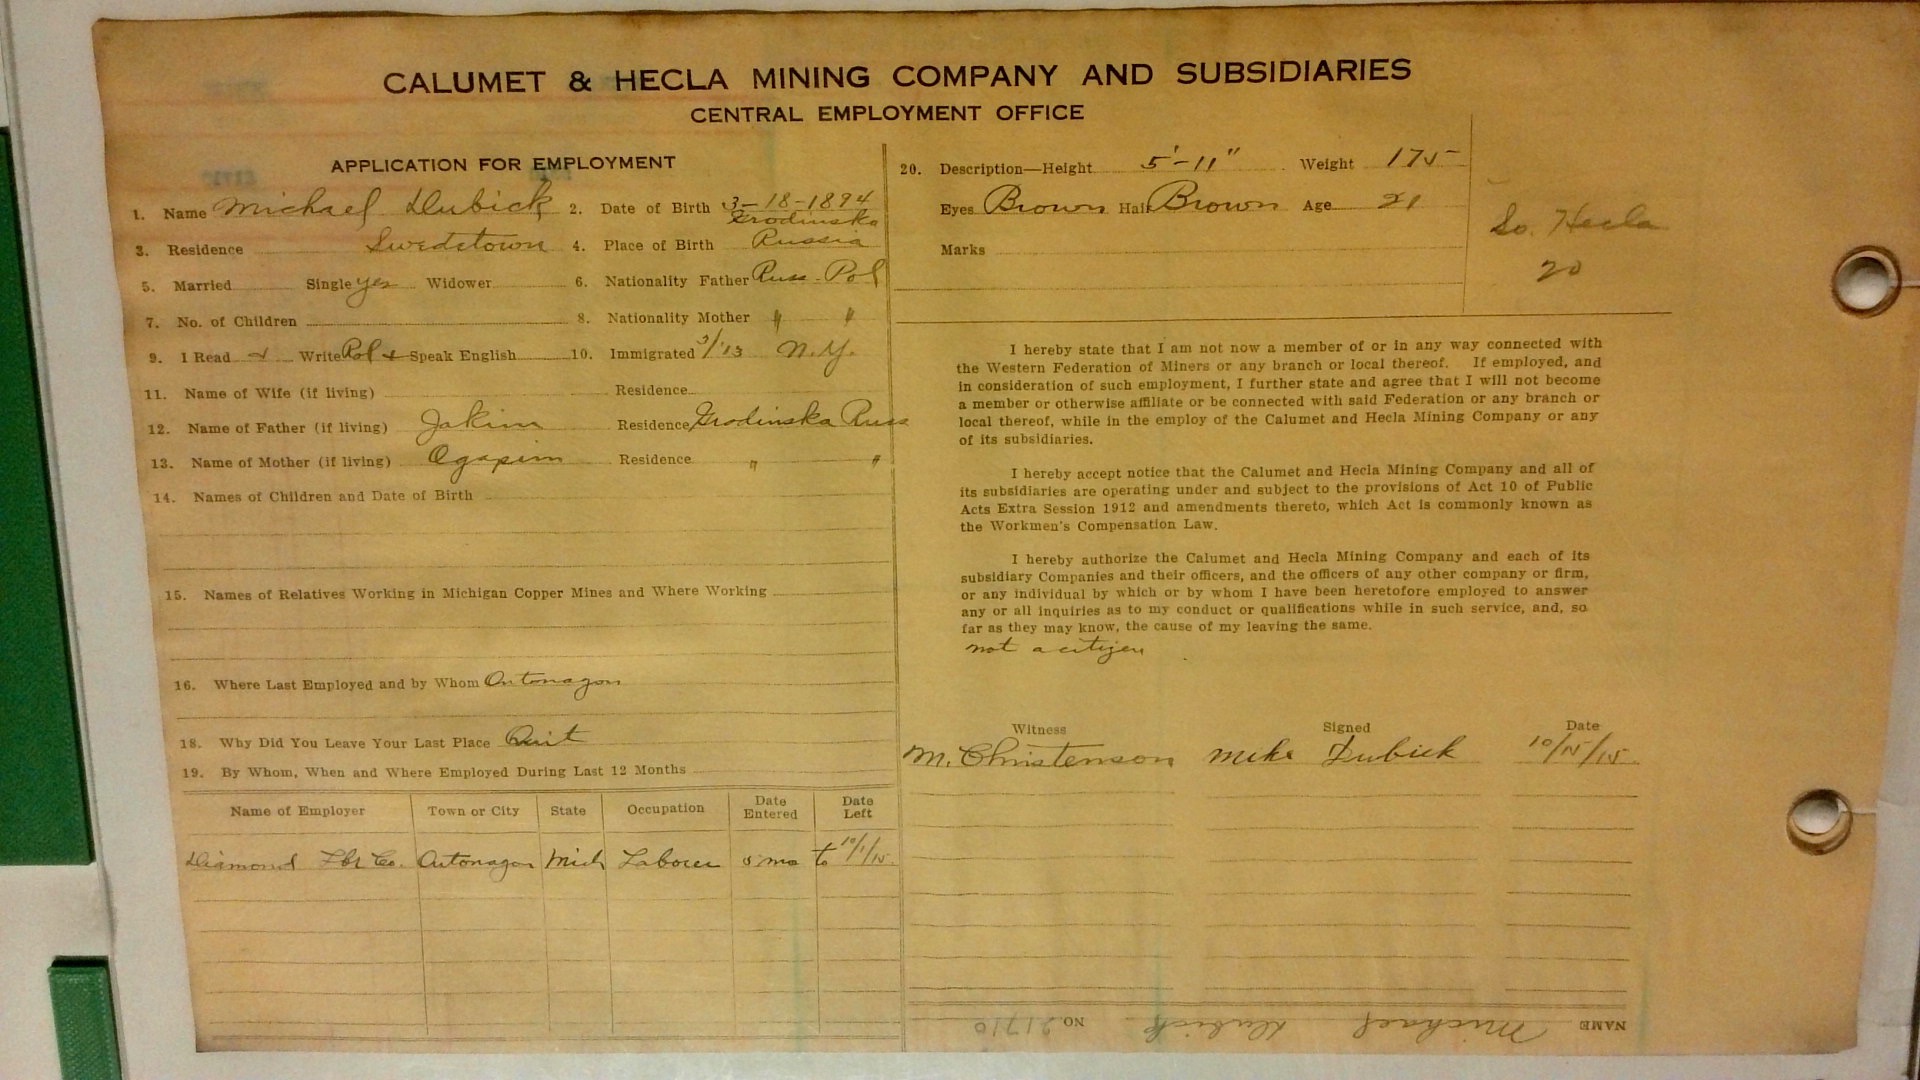 CALUMET & HECLA MINING COMPANY AND SUBSIDIARIES
CENTRAL EMPLOYMENT OFFICE
APPLICATION FOR EMPLOYMENT
1. Name Michael Dubick 2. Date of Birth 3-18-1894
Grodinska
3. Residence Swedetown 4. Place of Birth Russia
5. Married Single yes Widower 6. Nationality Father Russ-Pol
7. No. of Children 8. Nationality Mother " "
9. I Read + Write Pol + Speak English 10. Immigrated 3/'13 N.Y.
11. Name of Wife (if living) Residence
12. Name of Father (if living) Jakim Residence Grodinska Russ
13. Name of Mother (if living) Ogapim Residence " "
14. Names of Children and Date of Birth
15. Names of Relatives Working in Michigan Copper Mines and Where Working
16. Where Last Employed and by Whom Ontonagon
18. Why Did You Leave Your Last Place Quit
19. By Whom, When and Where Employed During Last 12 Months
Name of Employer Town or City State Occupation Date Entered Date Left
Diamond Lbr Co. Ontonagon Mich Laborer 5 mo to 10/1/15
20. Description—Height 5'-11" Weight 175
Eyes Brown Hair Brown Age 21
Marks
So. Hecla
20
I hereby state that I am not now a member of or in any way connected with
the Western Federation of Miners or any branch or local thereof. If employed, and
in consideration of such employment, I further state and agree that I will not become
a member or otherwise affiliate or be connected with said Federation or any branch or
local thereof, while in the employ of the Calumet and Hecla Mining Company or any
of its subsidiaries.
I hereby accept notice that the Calumet and Hecla Mining Company and all of
its subsidiaries are operating under and subject to the provisions of Act 10 of Public
Acts Extra Session 1912 and amendments thereto, which Act is commonly known as
the Workmen's Compensation Law.
I hereby authorize the Calumet and Hecla Mining Company and each of its
subsidiary Companies and their officers, and the officers of any other company or firm,
or any individual by which or by whom I have been heretofore employed to answer
any or all inquiries as to my conduct or qualifications while in such service, and, so
far as they may know, the cause of my leaving the same.
not a citizen
Witness Signed Date
M. Christenson Mike Dubick 10/15/15
NAME Michael Dubick NO. 21710